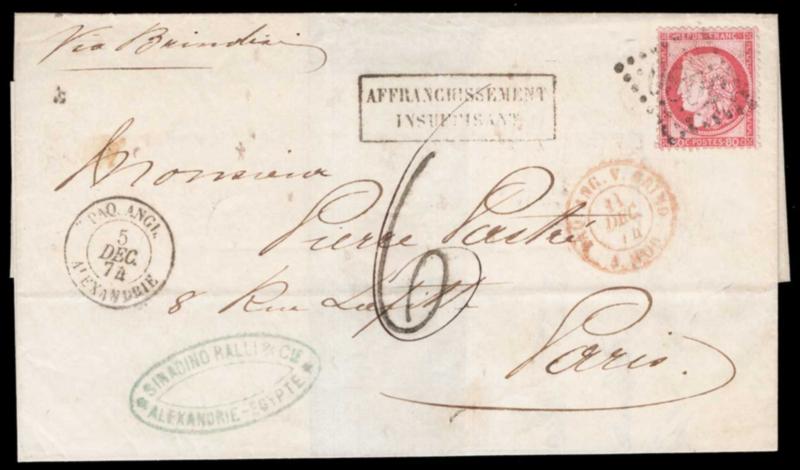 Via Brindisi
REPUB. FRANC.
80 C. POSTES 80
AFFRANCHISSEMENT
INSUFFISANT
Monsieur
Pierre Pastré
8 Rue Lafitte
Paris
6
PAQ. ANGL.
5
DEC.
74
ALEXANDRIE
V. BRIND
11
DEC.
74
A. MOD
SINADINO RALLI & CIE
ALEXANDRIE-EGYPTE